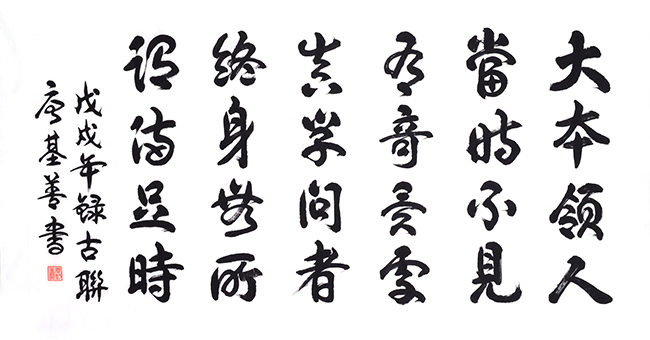 大本領人
當時不見
有奇異處
真學問者
終身無所
謂滿足時
戊戌年錄古聯
唐基善書